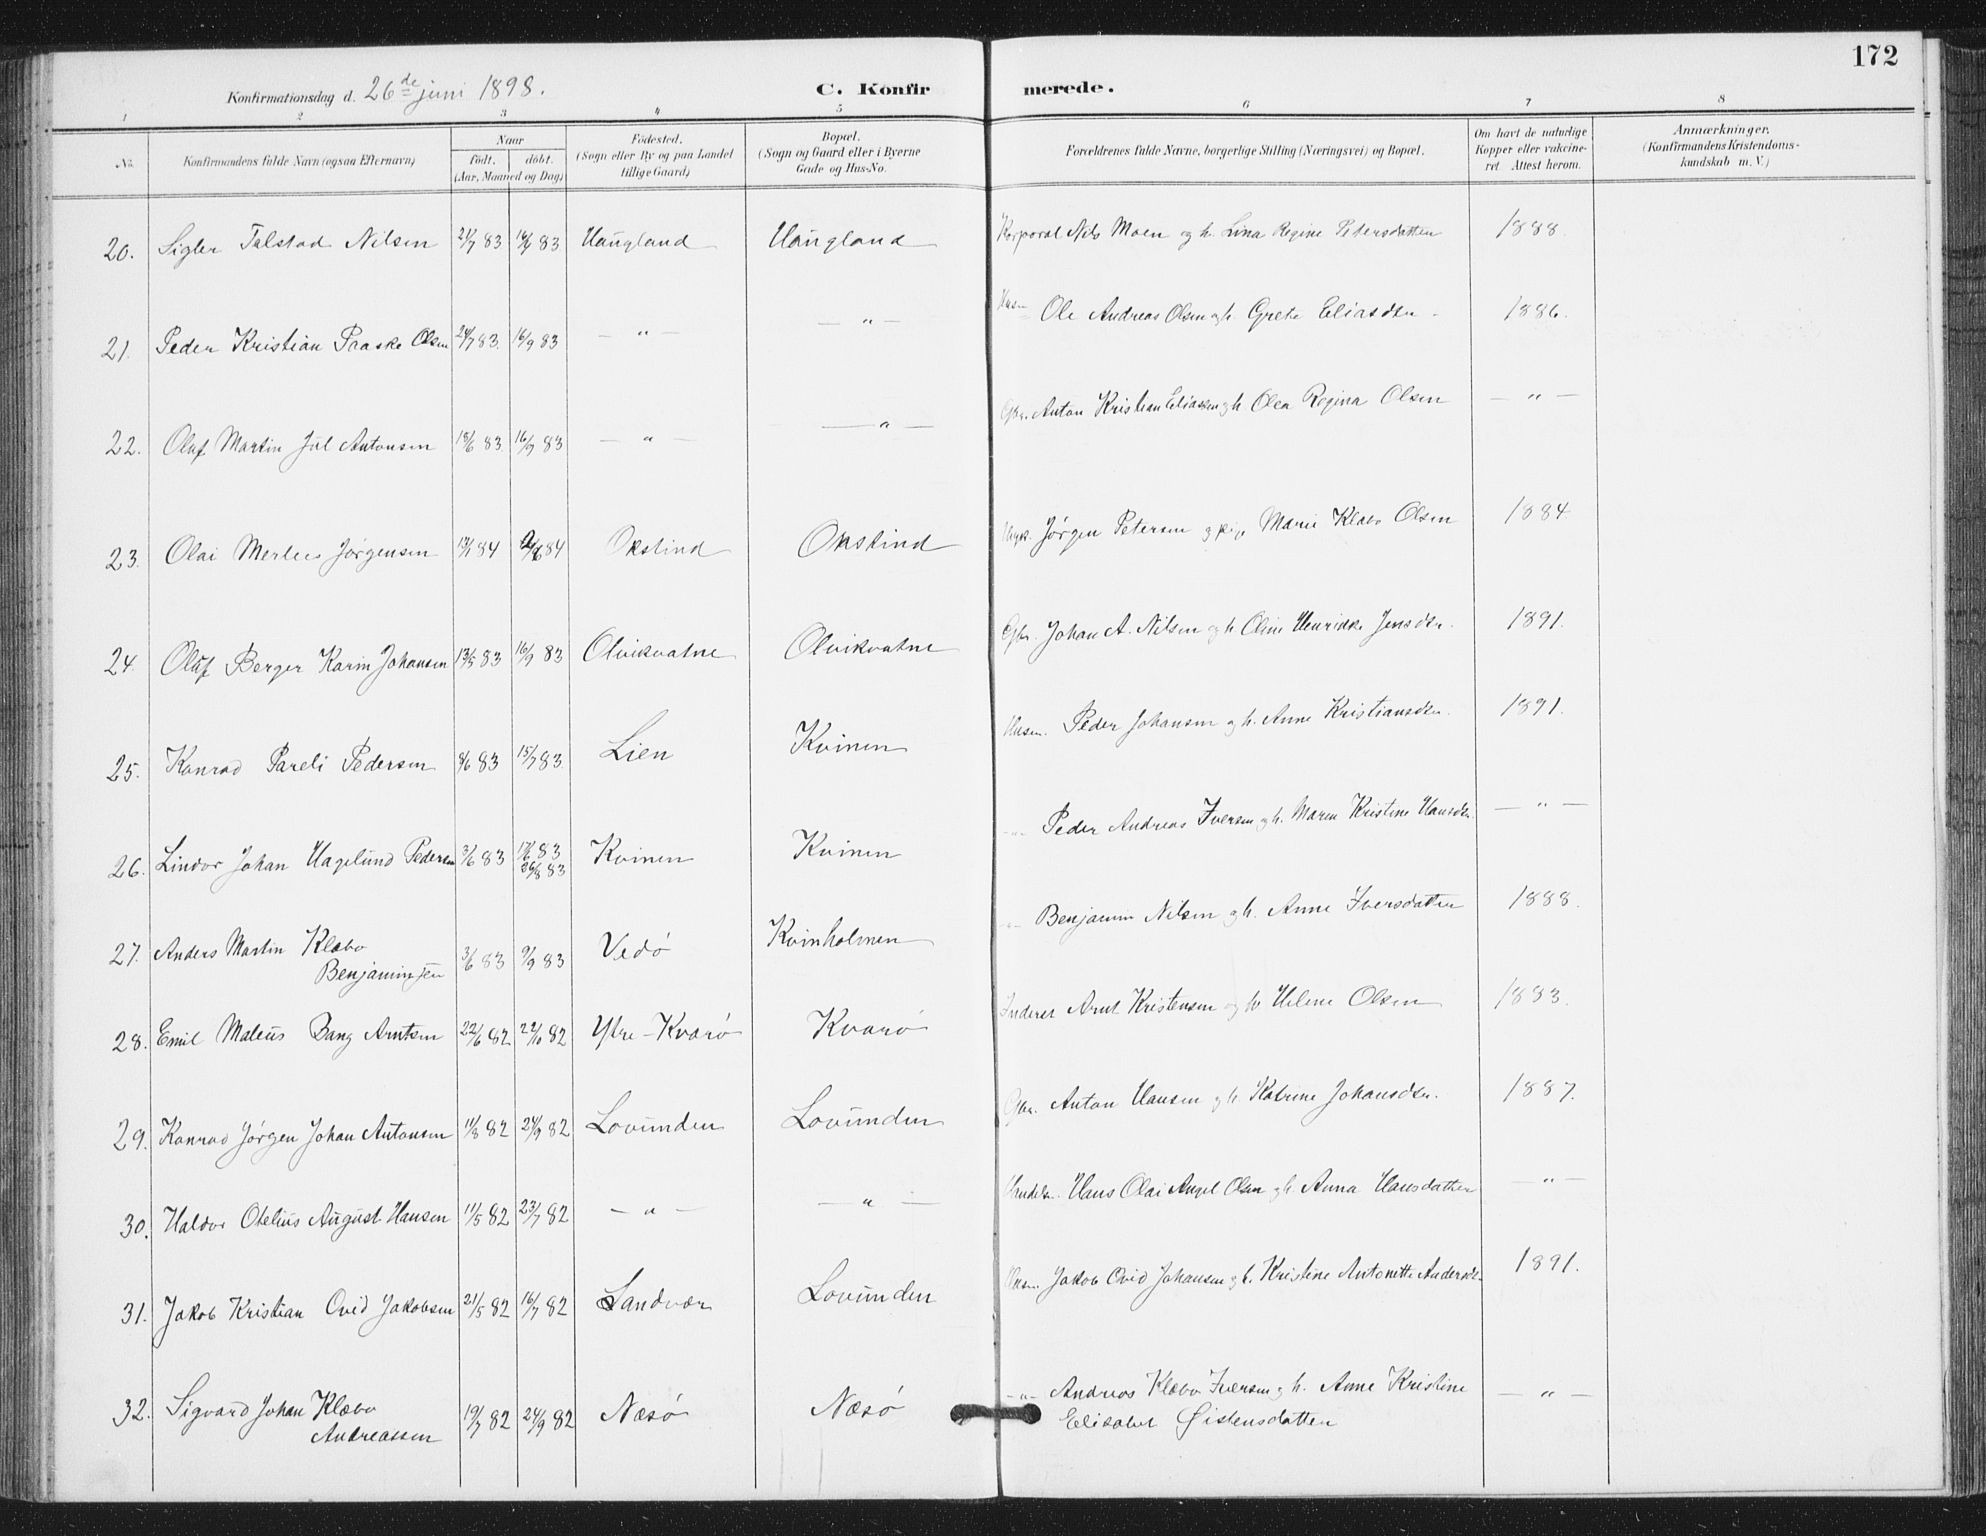 172
Konfirmationsdag d. 26de juni 1898. C. Konfirmerede.
1 2 3 4 5 6 7 8
No. Konfirmandens fulde Navn (ogsaa Efternavn) Naar født. døbt. (Aar, Maaned og Dag) Fødested. (Sogn eller By og paa Landet tillige Gaard) Bopæl. (Sogn og Gaard eller i Byerne Gade og Hus-No. Forældrenes fulde Navne, borgerlige Stilling (Næringsvei) og Bopæl. Om havt de naturlige Kopper eller vakcineret Attest herom. Anmærkninger. (Konfirmandens Kristendomskundskab m. V.)
20. Sigler Talstad Nilsen 21/7 83 16/9 83 Haugland Haugland Korporal Nils Moen og h. Lina Regine Petersdatten 1888.
21. Peder Kristian Paaske Olsen 24/7 83. 16/9 83 — " — — " — Husm Ole Andreas Olsen og h. Grete Eliasdtr. 1886.
22. Oluf Martin Jul Antonsen 18/6 83. 16/9 83 — " — — " — Gbr. Anton Kristian Eliassen og h Olea Regina Olsen — " —
23. Olai Merlees Jørgensen 13/1 84 84 Okstind Okstind Jørgen Petersen og pige Marie Klæbo Olsen 1884
24. Oluf Berger Karin Johansen 13/5 83 16/9 83 Olvikvatne Olvikvatne Gbr. Johan A. Nilsen og h Oline Henrikke Jensdtr. 1891.
25. Konrad Pareli Pedersen 8/6 83 15/7 83. Lien Kvinen Husm. Peder Johansen og h. Anne Kristiansdtr. 1891.
26. Lindor Johan Hagelund Pedersen 3/6 83 17/6 83 26/8 83 Kvinen Kvinen — " — Peder Andreas Iversen og h. Maren Kristine Hansdtr. — " —
27. Anders Martin Klæbo Benjaminsen 3/6 83 9/9 83 Vedø Kvinholmen — " — Benjamin Nilsen og h. Anne Iversdatter 1888.
28. Emil Maleus Bang Arntsen 22/6 82 22/10 82 Ytre-Kvarø Kvarø Inderst Arnt Kristensen og h Helene Olsen 1883.
29. Konrad Jørgen Johan Antonsen 11/8 82 24/9 82 Lovunden Lovunden Gbr. Anton Hansen og h Katrine Johansdtr. 1887.
30. Haldor Otelius August Hansen 11/5 82 23/7 82 — " — — " — Handelsm. Hans Olai Angel Olsen og h. Anna Hansdatter — " —
31. Jakob Kristian Ovid Jakobsen 21/5 82 16/7 82 Sandvær Lovunden Husm. Jakob Ovid Johansen og h. Kristine Antonette Andersdtr. 1891.
32. Sigvard Johan Klæbo Andreassen 19/7 82 24/9 82 Næsø Næsø — " — Andreas Klæbo Iversen og h. Anne Kristine Elisabet Øistensdatter — " —